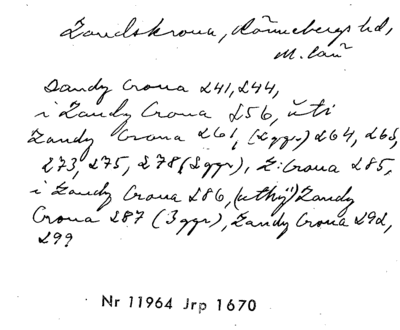 Landskrona, Rönnebergs hd,
M. län
Landz Crona 241, 244,
i Landz Crona 256, uti
Landz Crona 261, (2 ggr) 264, 265,
273, 275, 278 (2 ggr), L: Crona 285,
i Landz Crona 286, (uthj) Landz
Crona 287 (3 ggr), Landz Crona 292,
299
Nr 11964 Jrp 1670